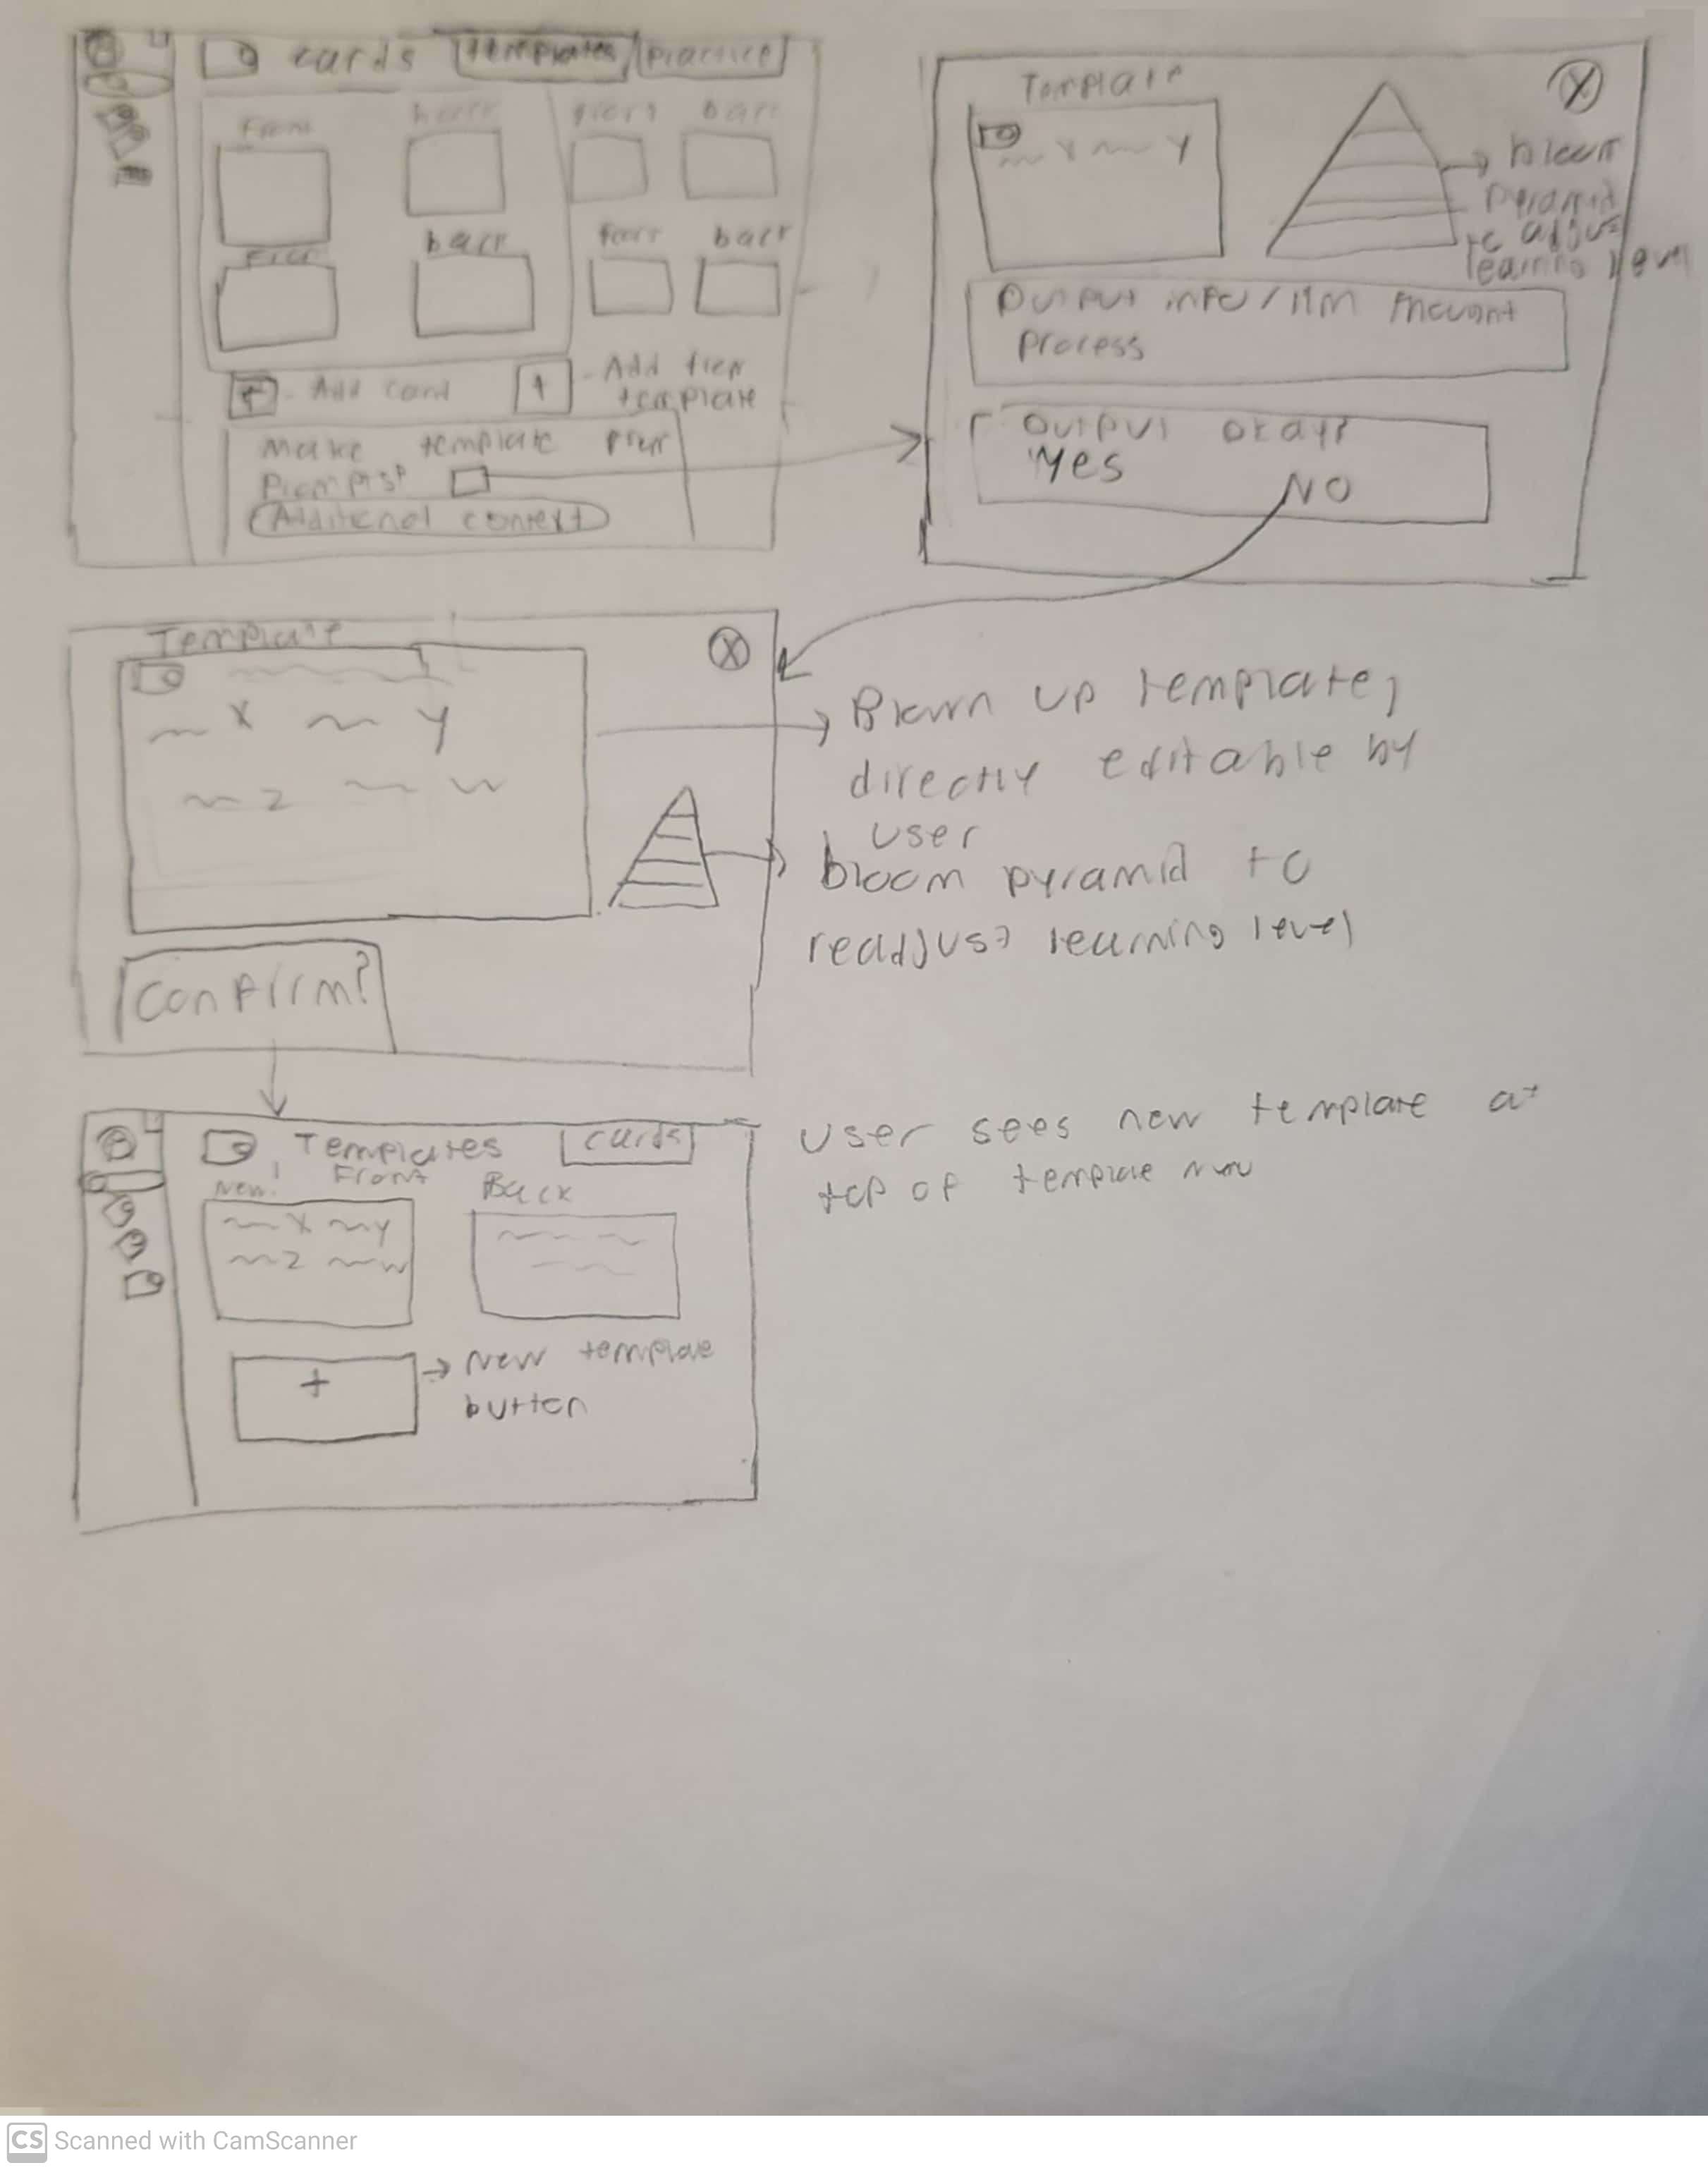 cards Templates Practice
Front back Front back
Front back Front back
+ - Add card + - Add
template
Make template from
Additional context
Template
X
~ X ~ Y
bloom
pyramid
to adjust
learning level
Output info / llm thought
process
Output okay?
Yes
NO
Template
X
~ X ~ Y
~ z ~ w
Blown up template,
directly editable by
user
bloom pyramid to
readjust learning level
Confirm?
Templates cards
New! Front Back
~ X ~ Y
~ z ~ w
+
New template
button
User sees new template at
top of template
CS Scanned with CamScanner